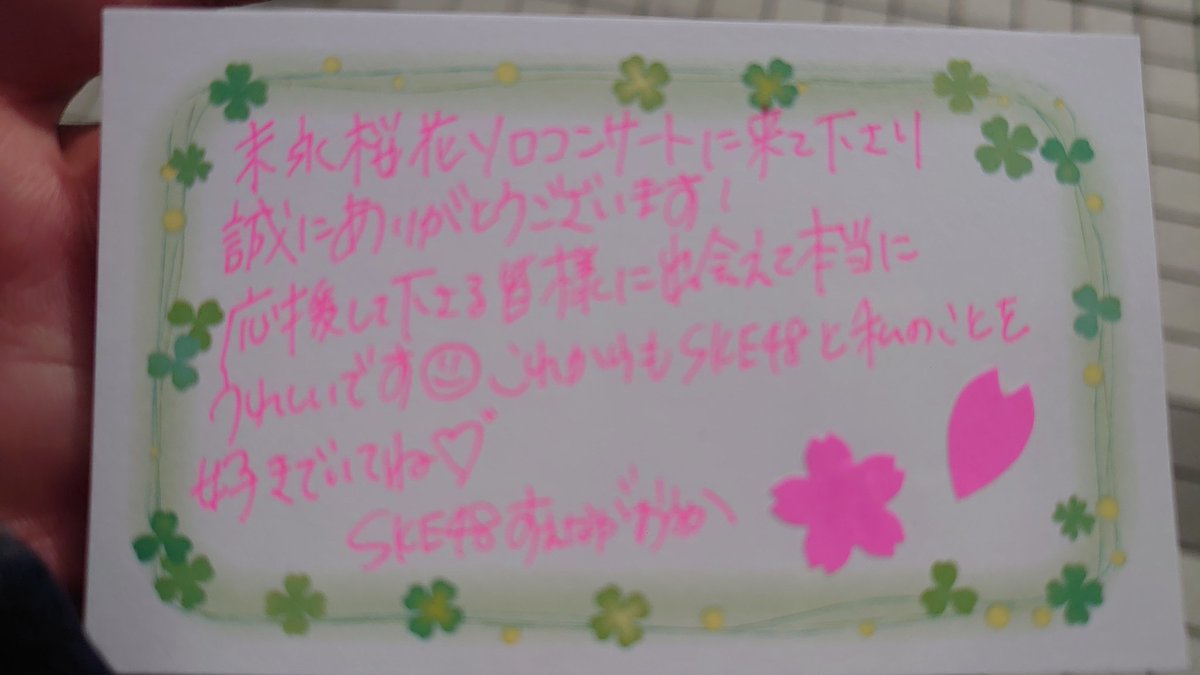 末永桜花ソロコンサートに来て下さり
誠にありがとうございます!
応援して下さる皆様に出会えて本当に
うれしいです☺これからもSKE48と私のことを
好きでいてね♡
SKE48すえながおうか